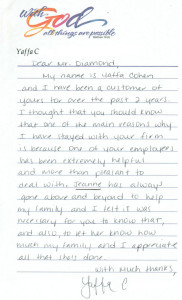 with God
all things are possible
Yaffa C
Dear Mr. Diamond,
My name is Yaffa Cohen
and I have been a customer of
yours for over the past 2 years.
I thought that you should know
that one of the main reasons why
I have stayed with your firm
is because one of your employees
has been extremely helpful
and more than pleasant to
deal with. Jeanne has always
gone above and beyond to help
my family and I felt it was
necessary for you to know that,
and also, to let her know how
much my family and I appreciate
all that she's done.
With much thanks,
Yaffa C